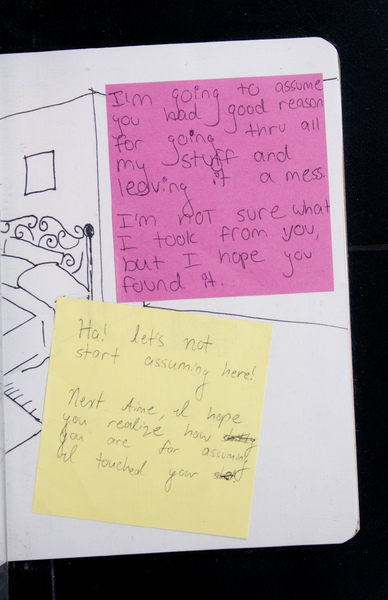 I'm going to assume
you had good reason
for going thru all
my stuff and
leaving it a mess.
I'm not sure what
I took from you,
but I hope you
found it.
Ha! let's not
start assuming here!
Next time, I hope
you realize how
you are for assuming
I touched your